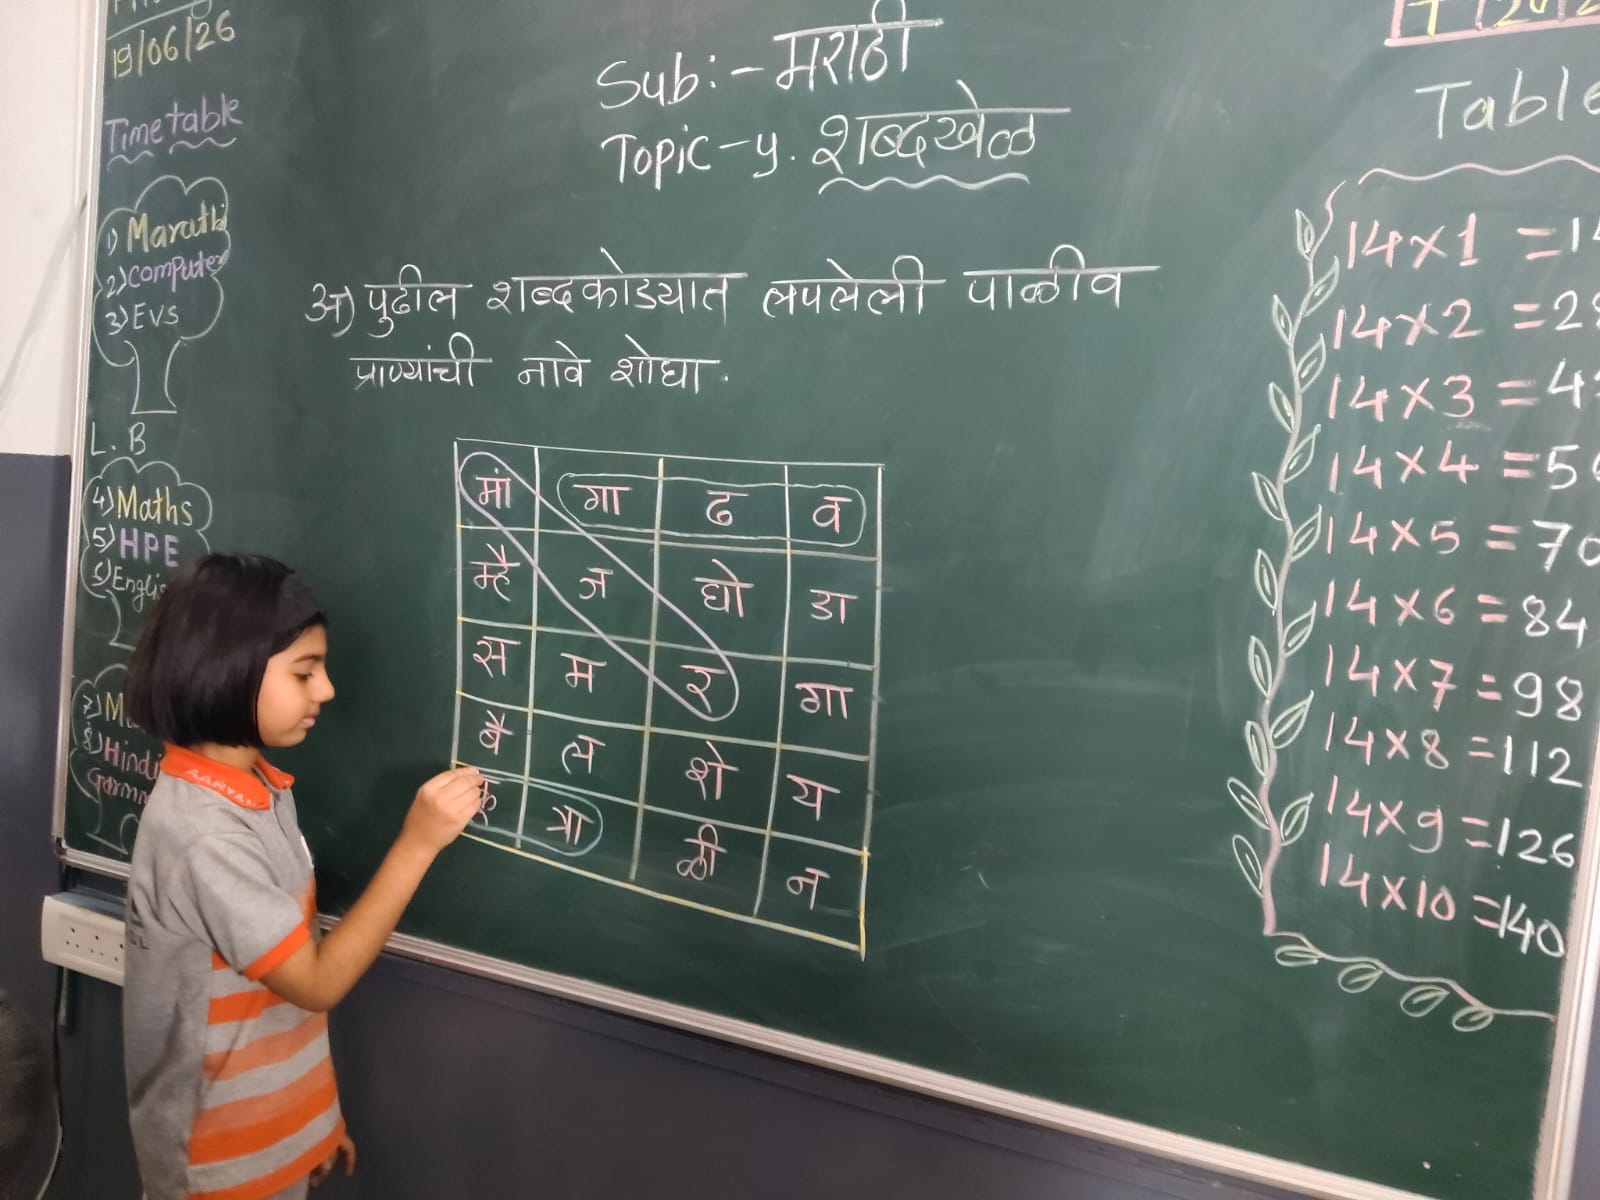 19/06/26
Timetable
1) Marathi
2) computer
3) EVS
L. B
4) Maths
5) HPE
6) Englis
7) M
8) Hindi
Sub:- मराठी
Topic-५. शब्दखेळ
अ) पुढील शब्दकोड्यात लपलेली पाळीव
प्राण्यांची नावे शोधा.
मां गा ढ व
म्है ज घो डा
स म र गा
बै ल शे य
त्रा ळी न
Table
14×1 =14
14×2 =28
14×3 =4
14×4 =56
14×5 =70
14×6 =84
14×7 =98
14×8 =112
14×9 =126
14×10 =140
AARYAN